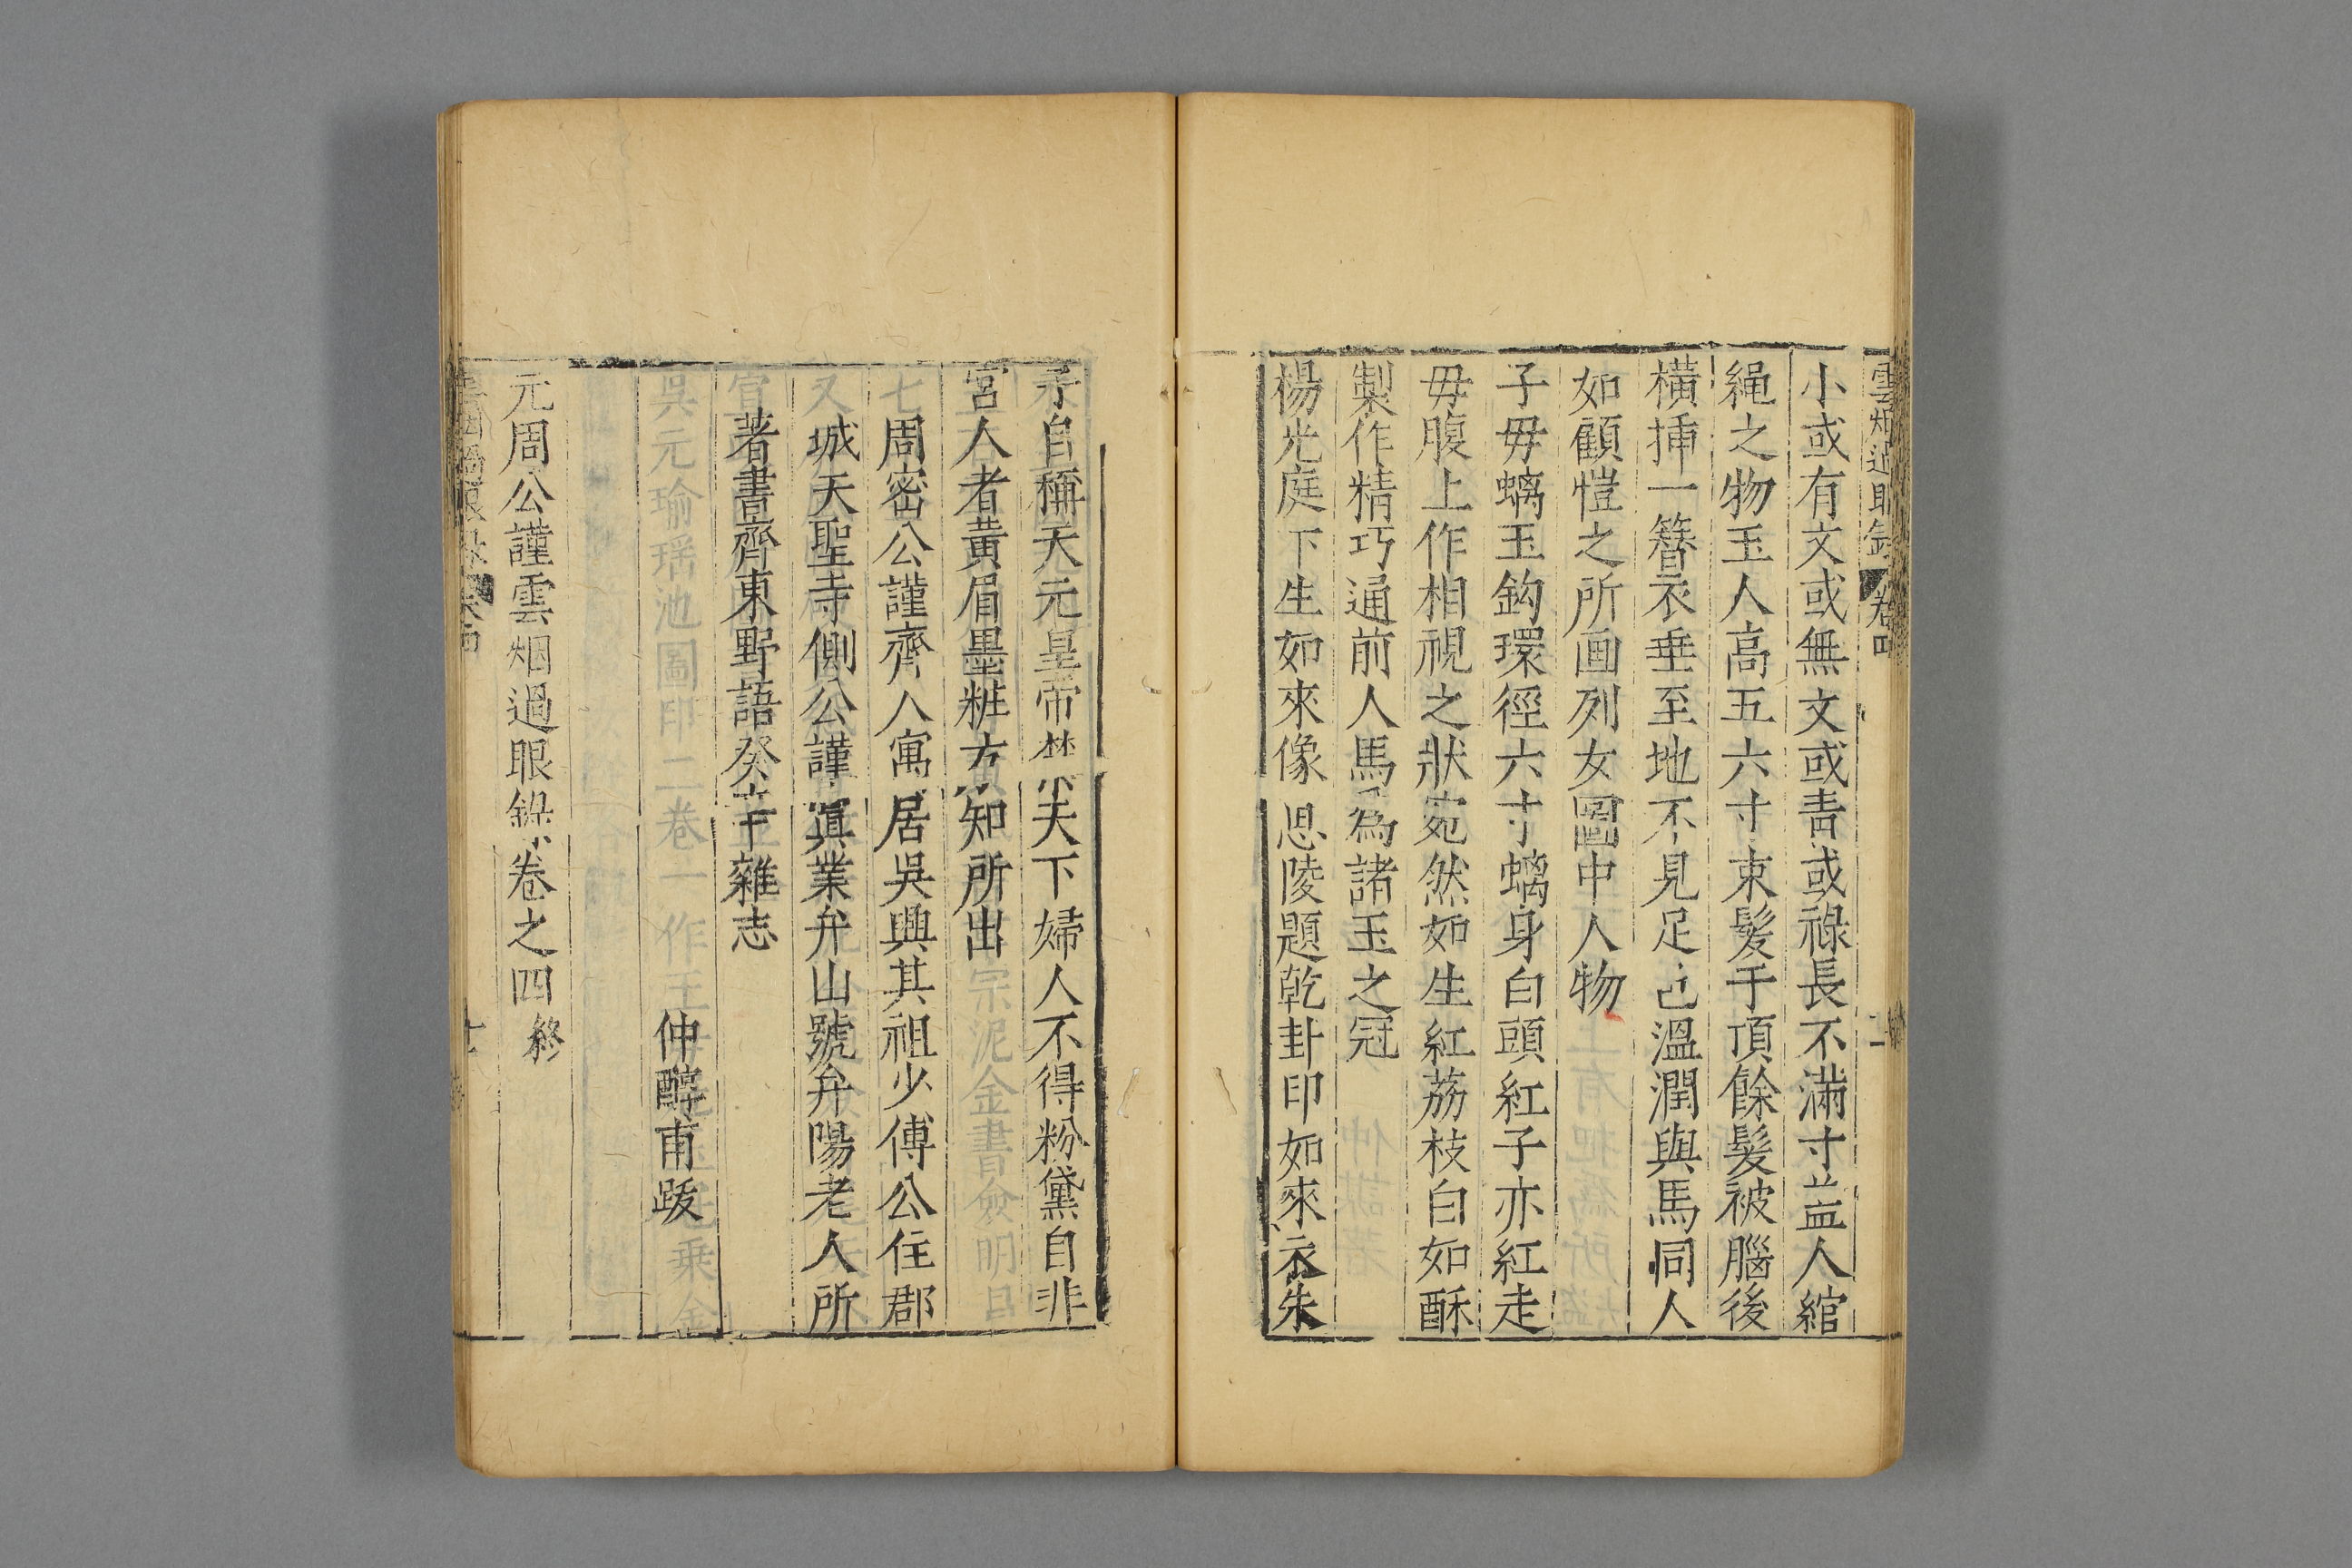 雲烟過眼錄 卷四
小或有文或無文或青或祿長不滿寸益人綰
繩之物玉人高五六寸束髮于頂餘髮被腦後
橫挿一簪衣垂至地不見足色溫潤與馬同人
如顧愷之所画列女圖中人物
子毋螭玉鈎環徑六寸螭身白頭紅子亦紅走
毋腹上作相視之狀宛然如生紅荔枝白如酥
製作精巧通前人馬爲諸玉之冠
楊光庭下生如來像 思陵題乾卦印如來衣朱
子自稱天元皇帝禁天下婦人不得粉黛自非
宮人者黃眉墨粧方知所出
周密公謹齊人寓居吳興其祖少傅公住郡
城天聖寺側公謹寘業弁山號弁陽老人所
著書齊東野語癸辛雜志
仲醇甫跋
元周公謹雲烟過眼錄卷之四終